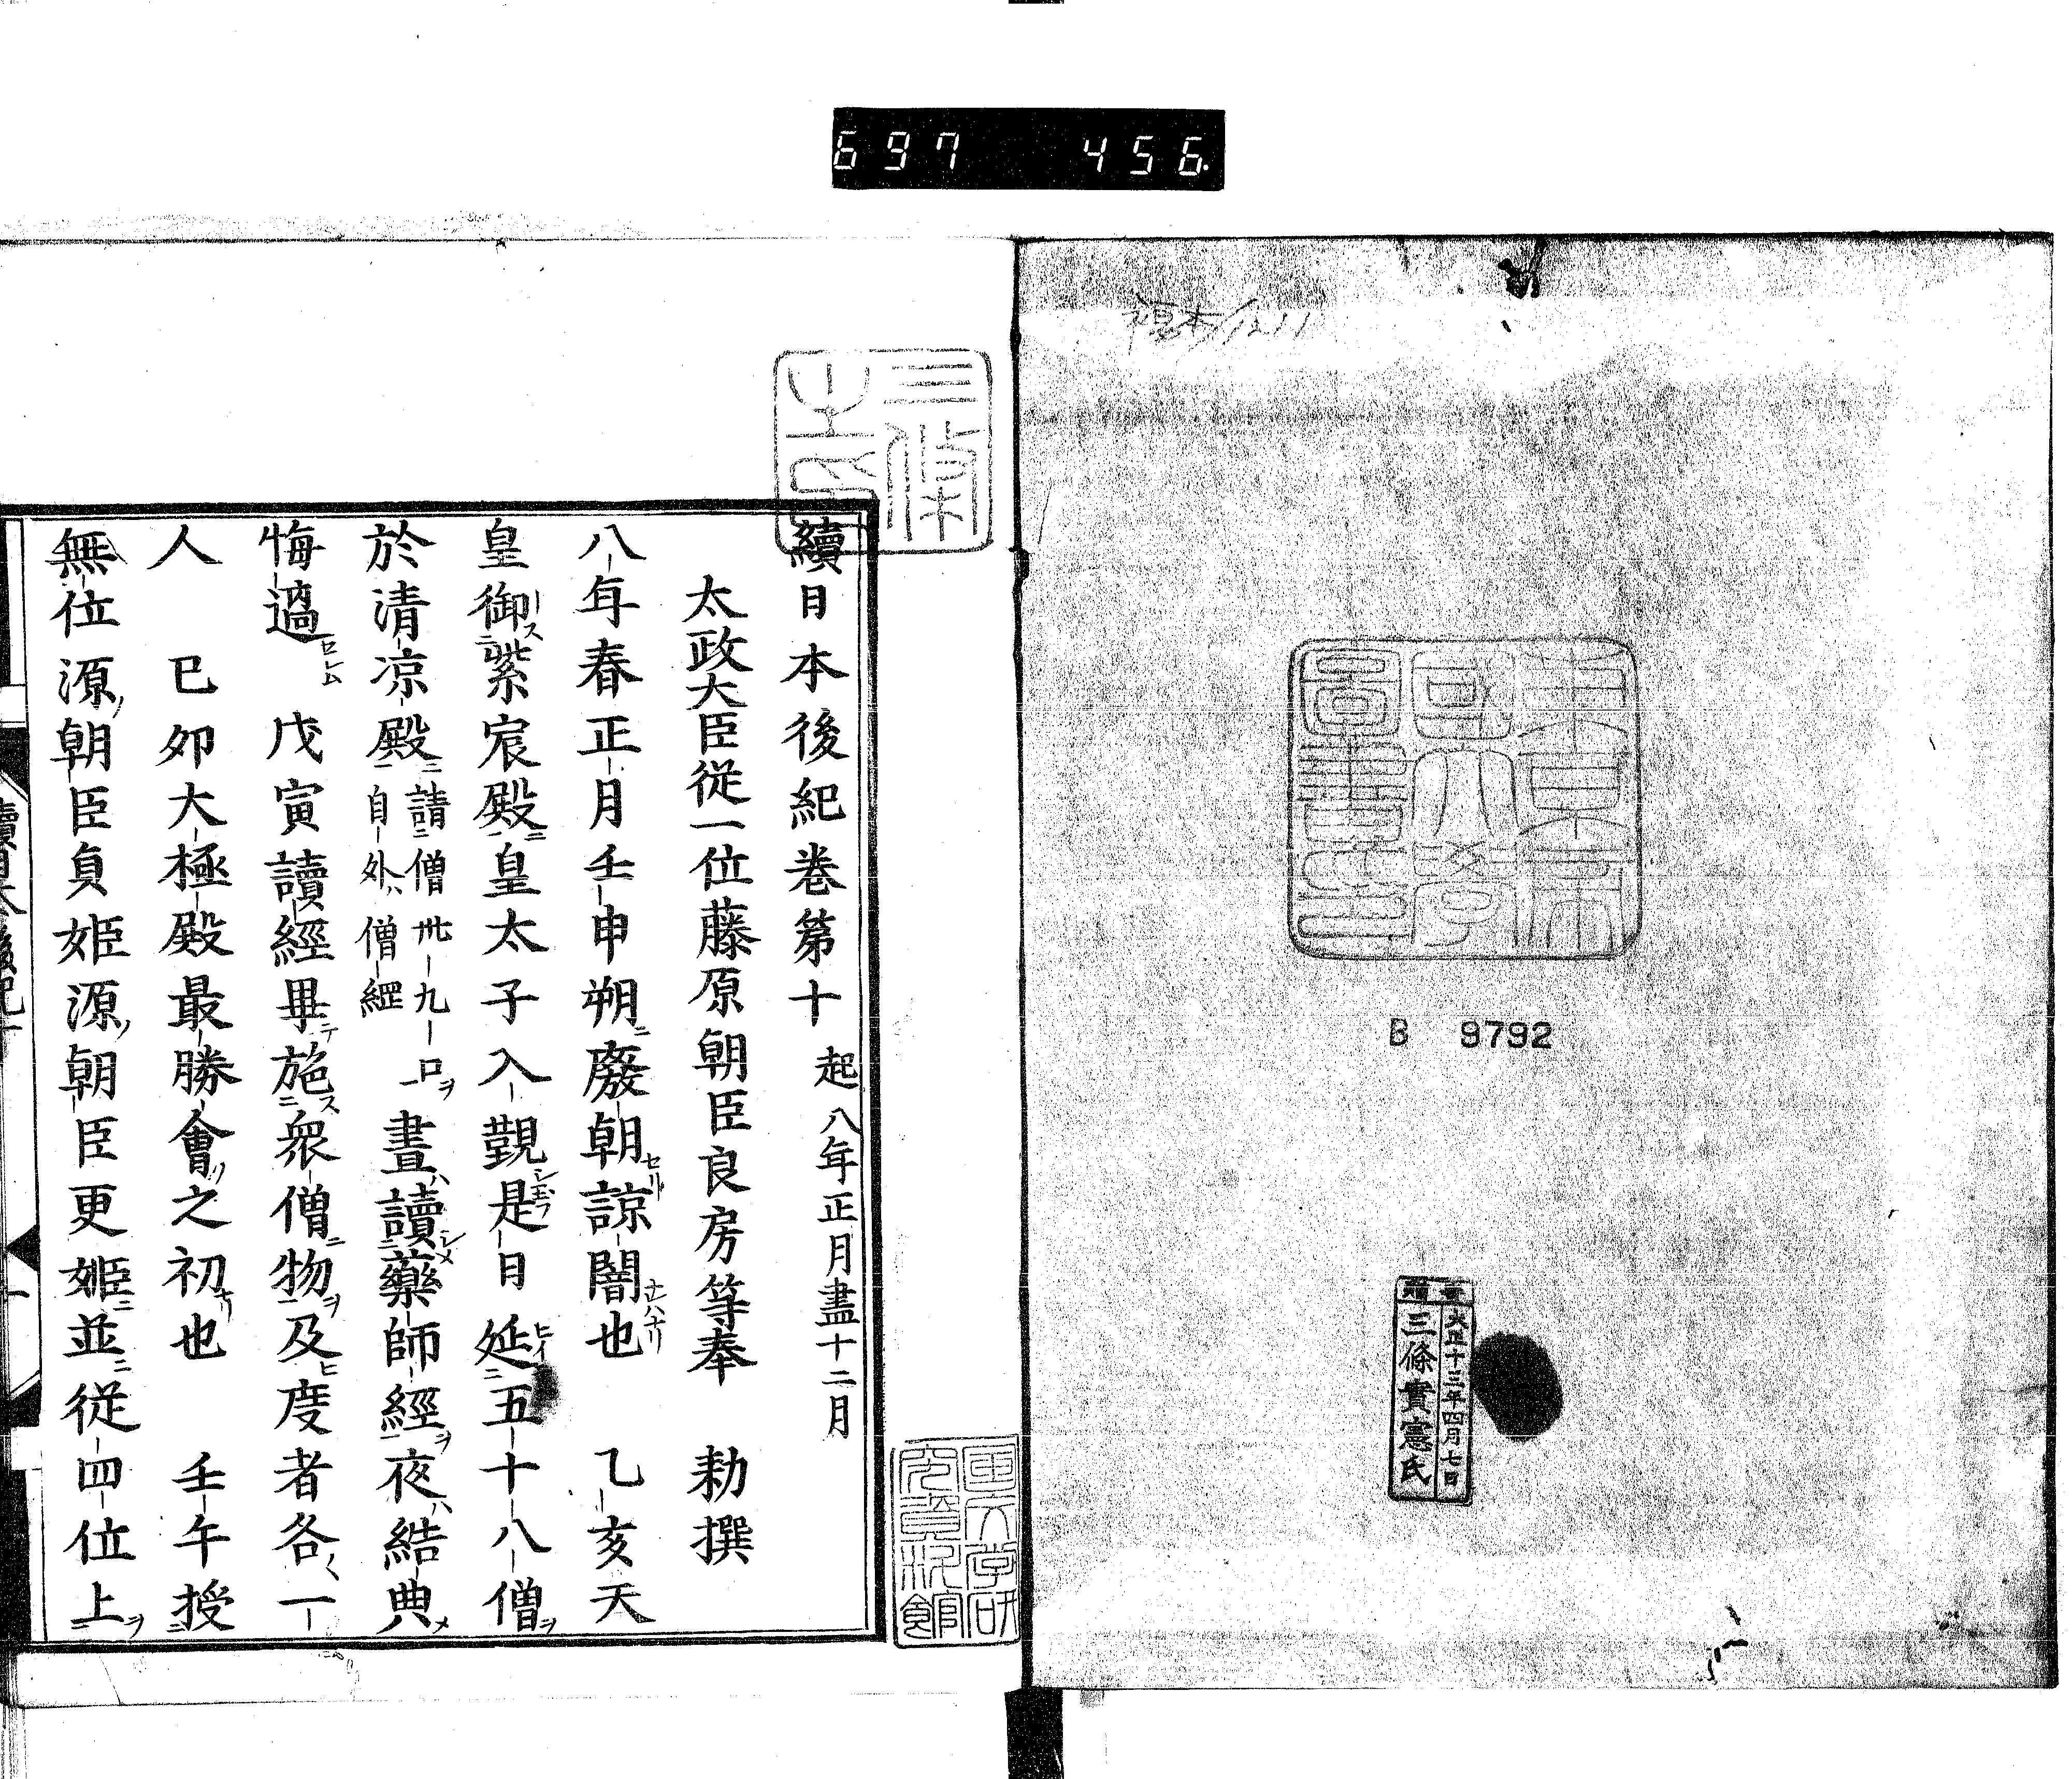 697 456.
B 9792
大正十三年四月七日
三條實憲氏
續日本後紀卷第十 起八年正月盡十二月
太政大臣從一位藤原朝臣良房等奉 勅撰
八年春正月壬申朔廢朝諒闇也 乙亥天
皇御紫宸殿皇太子入覲是日延五十八僧
於清凉殿 請僧卅九口
自外僧綱
晝讀藥師經夜結典
悔過 戊寅讀經畢施衆僧物及度者各一
人 己卯大極殿最勝會之初也 壬午授
無位源朝臣貞姫源朝臣更姫並從四位上